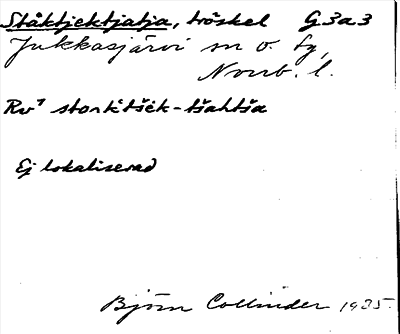 Ståktjektjatja, tröskel G3a3
Jukkasjärvi sn o. tg,
Norrb. l.
Rv⁷ storkitšek-tšahtša
Ej lokaliserad
Björn Collinder 1935.